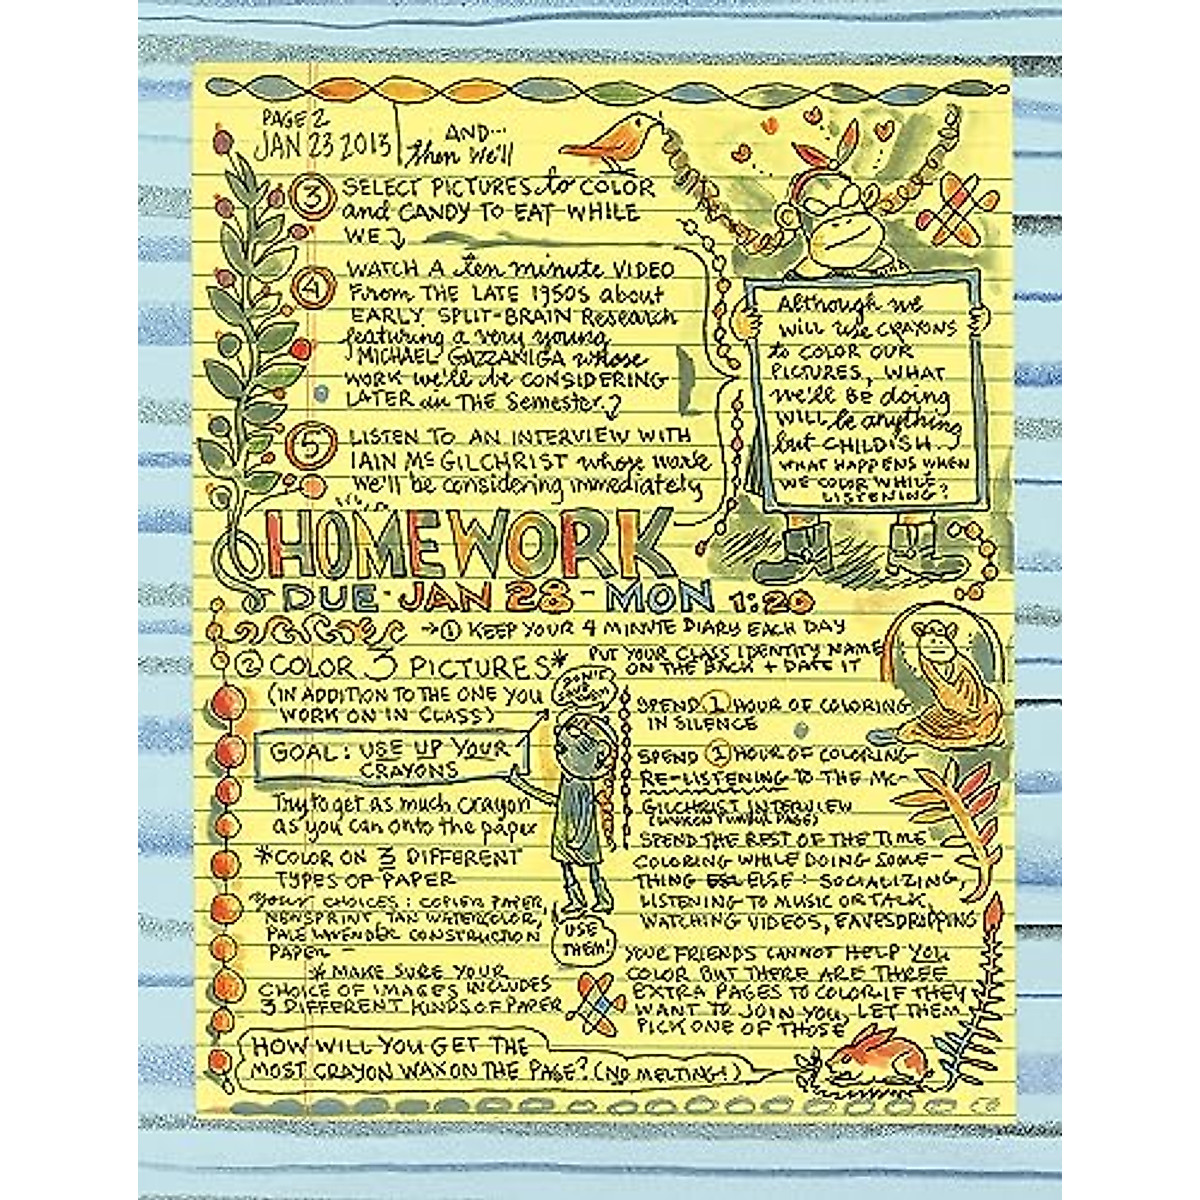 PAGE 2
JAN 23 2013
AND...
then we'll
3 SELECT PICTURES to COLOR
and CANDY TO EAT WHILE
WE
4 WATCH A ten minute VIDEO
From THE LATE 1950s about
EARLY SPLIT-BRAIN Research
featuring a very young
MICHAEL GAZZANIGA whose
WORK we'll be CONSIDERING
LATER in THE Semester.
5 LISTEN TO AN INTERVIEW WITH
IAIN McGILCHRIST whose work
we'll be considering immediately
Although we
WILL use CRAYONS
to COLOR OUR
PICTURES, WHAT
we'll BE doing
WILL be anything
but CHILDISH...
WHAT HAPPENS WHEN
WE COLOR WHILE
LISTENING?
HOMEWORK
DUE - JAN 28 - MON 1:20
→① KEEP YOUR 4 MINUTE DIARY EACH DAY
② COLOR 3 PICTURES*
PUT YOUR CLASS IDENTITY NAME
ON THE BACK + DATE IT
(IN ADDITION TO THE ONE YOU
WORK ON IN CLASS)
GOAL: USE UP YOUR
CRAYONS
Try to get as much crayon
as you can onto the paper
*COLOR ON 3 DIFFERENT
TYPES OF PAPER
your CHOICES: COPIER PAPER,
NEWSPRINT, TAN WATERCOLOR,
PALE LAVENDER CONSTRUCTION
PAPER -
*MAKE SURE YOUR
CHOICE OF IMAGES INCLUDES
3 DIFFERENT KINDS OF PAPER
DON'T
SAVE
CRAYONS!
USE
THEM!
SPEND 1 HOUR OF COLORING
IN SILENCE
SPEND 1 HOUR OF COLORING
RE-LISTENING TO THE Mc-
GILCHRIST INTERVIEW
(LINK ON TUMBLR PAGE)
SPEND THE REST OF THE TIME
COLORING WHILE DOING SOME-
THING ELSE: SOCIALIZING,
LISTENING TO MUSIC OR TALK,
WATCHING VIDEOS, EAVESDROPPING
YOUR FRIENDS CANNOT HELP YOU
COLOR BUT THERE ARE THREE
EXTRA PAGES TO COLOR IF THEY
WANT TO JOIN YOU, LET THEM
PICK ONE OF THOSE
HOW WILL YOU GET THE
MOST CRAYON WAX ON THE PAGE? (NO MELTING!)